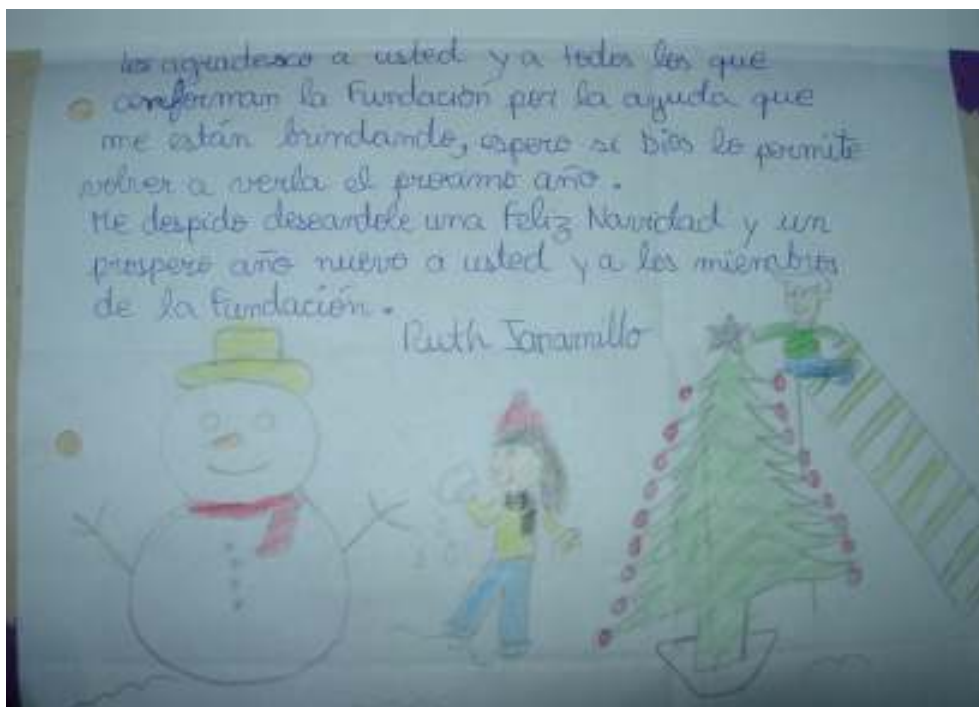 les agradesco a usted y a todos los que
conforman la Fundación por la ayuda que
me están brindando, espero si Dios lo permite
volver a verla el proximo año.
Me despido deseandole una Feliz Navidad y un
prospero año nuevo a usted y a los miembros
de la Fundación.
Ruth Jaramillo